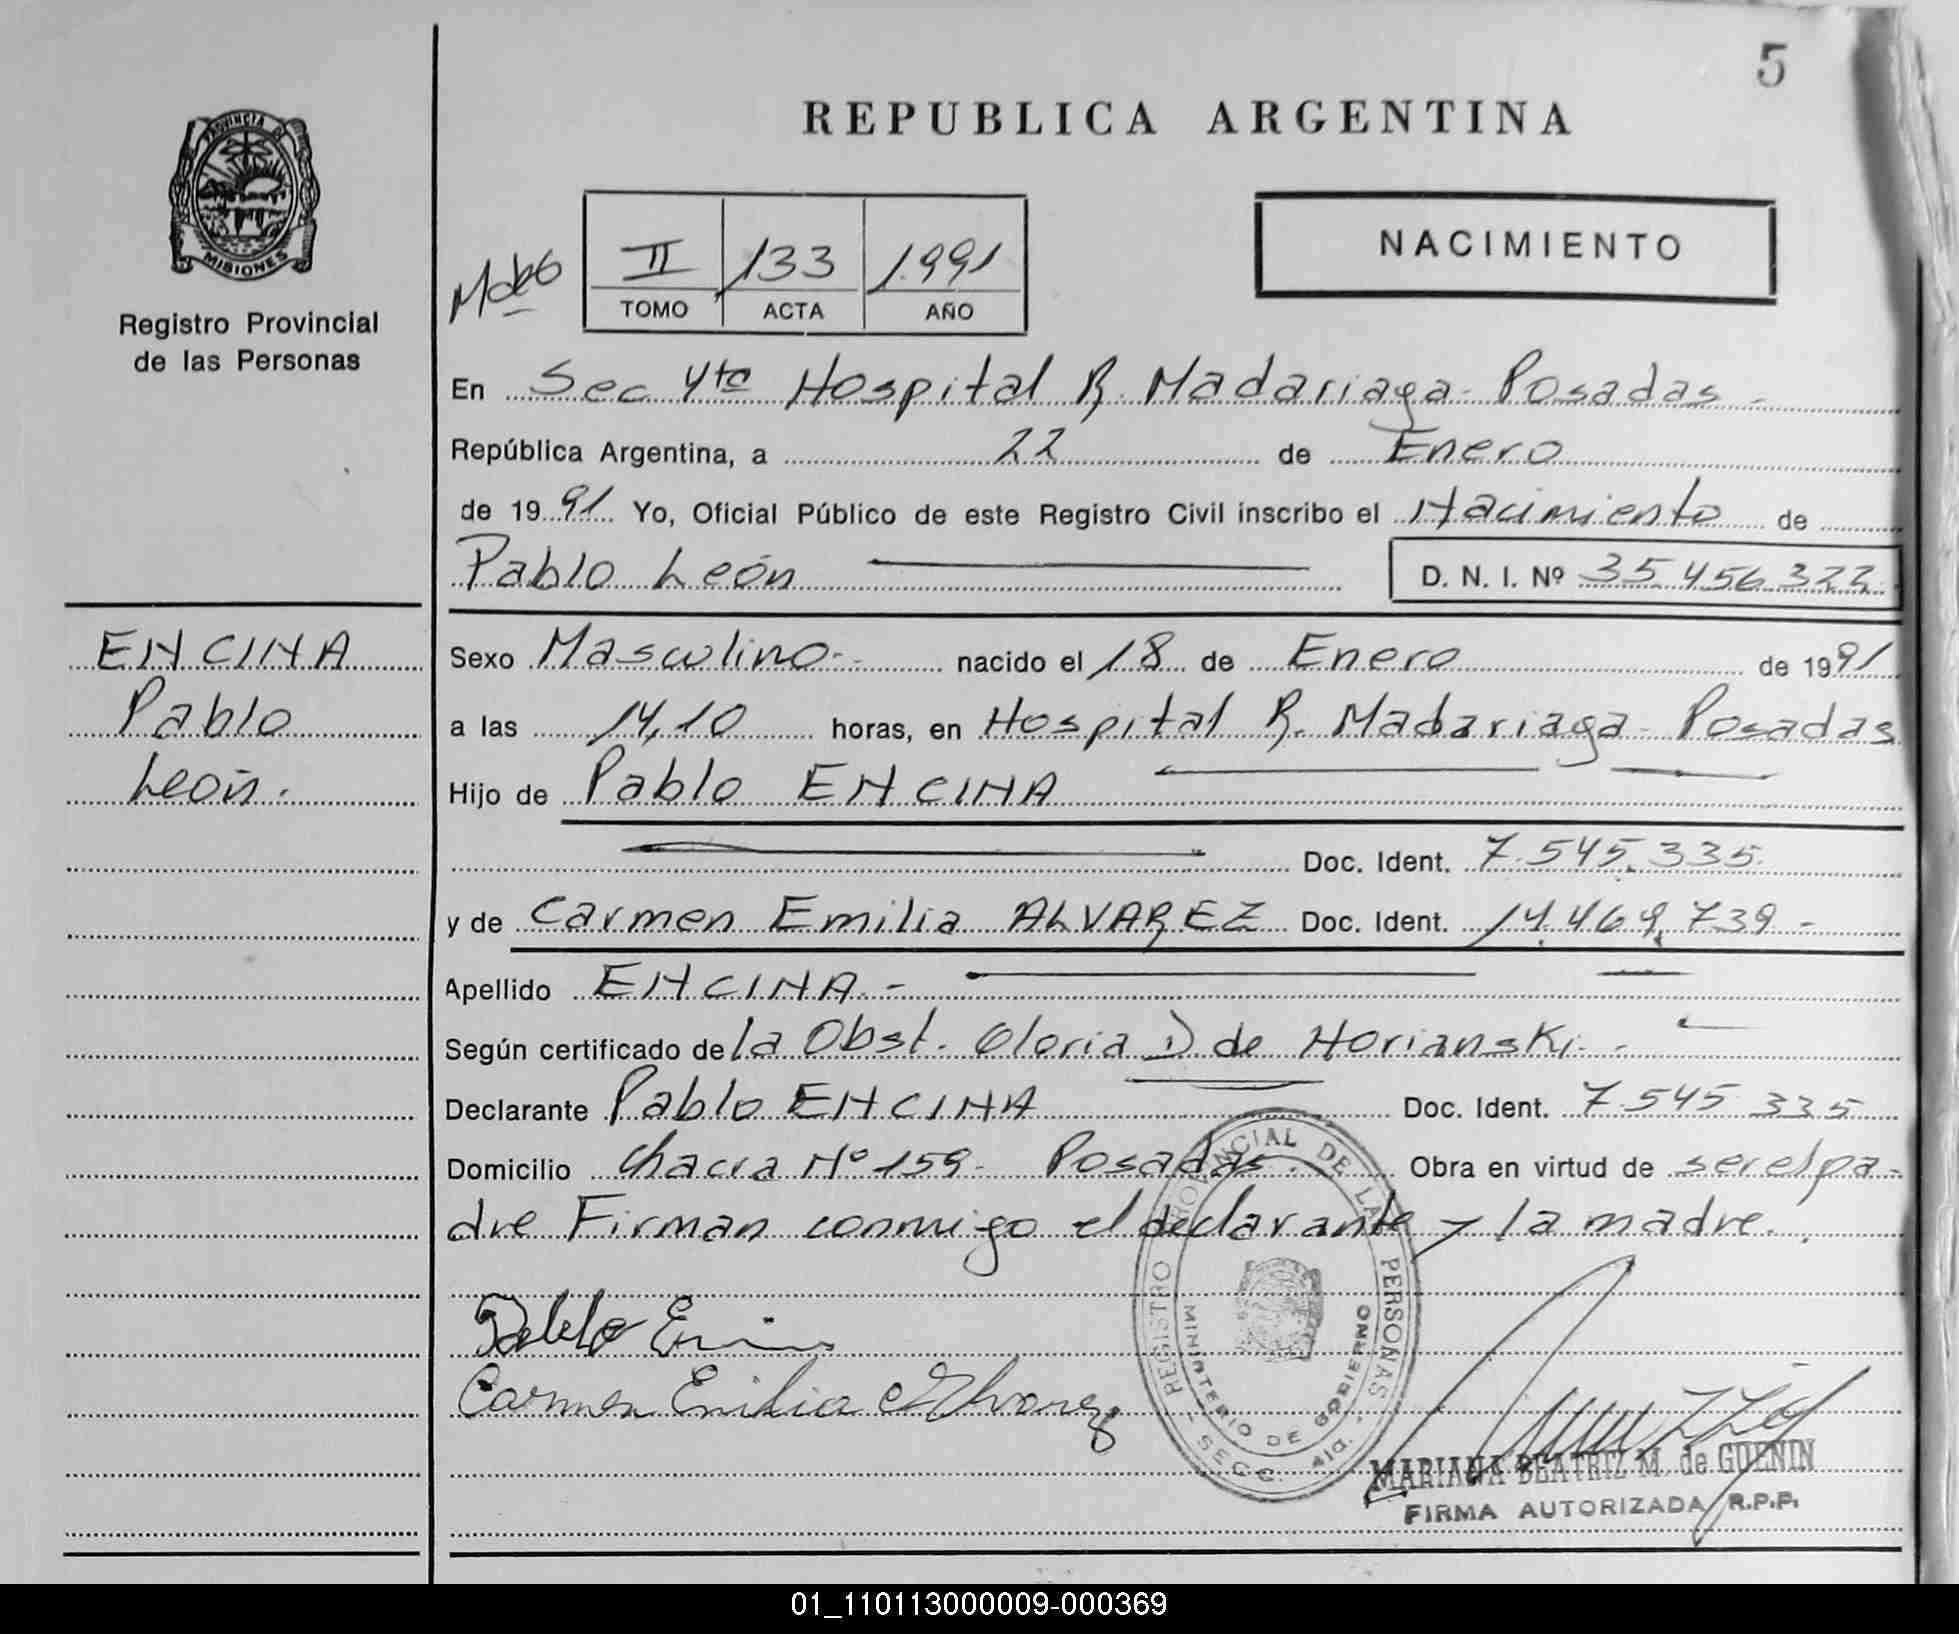 5
REPUBLICA ARGENTINA
PROVINCIA DE
MISIONES
Registro Provincial
de las Personas
II 133 1.991
TOMO ACTA AÑO
NACIMIENTO
En Sec 4ta Hospital R. Madariaga - Posadas -
República Argentina, a 22 de Enero
de 19 91 Yo, Oficial Público de este Registro Civil inscribo el Nacimiento de
Pablo León D. N. I. Nº 35.456.322
ENCINA
Pablo
León.
Sexo Masculino.- nacido el 18 de Enero de 19 91
a las 14,10 horas, en Hospital R. Madariaga - Posadas
Hijo de Pablo ENCINA
Doc. Ident. 7.545.335
y de Carmen Emilia ALVAREZ Doc. Ident. 14.469.739 -
Apellido ENCINA.-
Según certificado de la Obst. Gloria D de Horianski.-
Declarante Pablo ENCINA Doc. Ident. 7.545.335
Domicilio Chacra Nº 159 - Posadas. Obra en virtud de ser el pa-
dre Firman conmigo el declarante y la madre.
Pablo
Carmen Emilia Alvarez
REGISTRO PROVINCIAL DE LAS PERSONAS
MINISTERIO DE GOBIERNO
MARIANA BEATRIZ M. de GUENIN
FIRMA AUTORIZADA R.P.P.
01_110113000009-000369